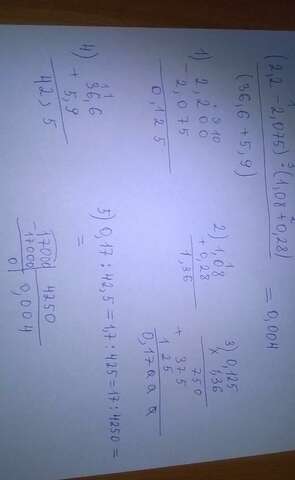 1 3 2
(2,2 - 2,075) · (1,08 + 0,28)
(36,6 + 5,9)
= 0,004
1) 2,200
- 2,075
0,125
2) 1,08
+ 0,28
1,36
3) 0,125
× 1,36
750
+ 375
125
0,17000
4) 36,6
+ 5,9
42,5
5) 0,17 : 42,5 = 1,7 : 425 = 17 : 4250 =
=
17000 4250
17000 0,004
0